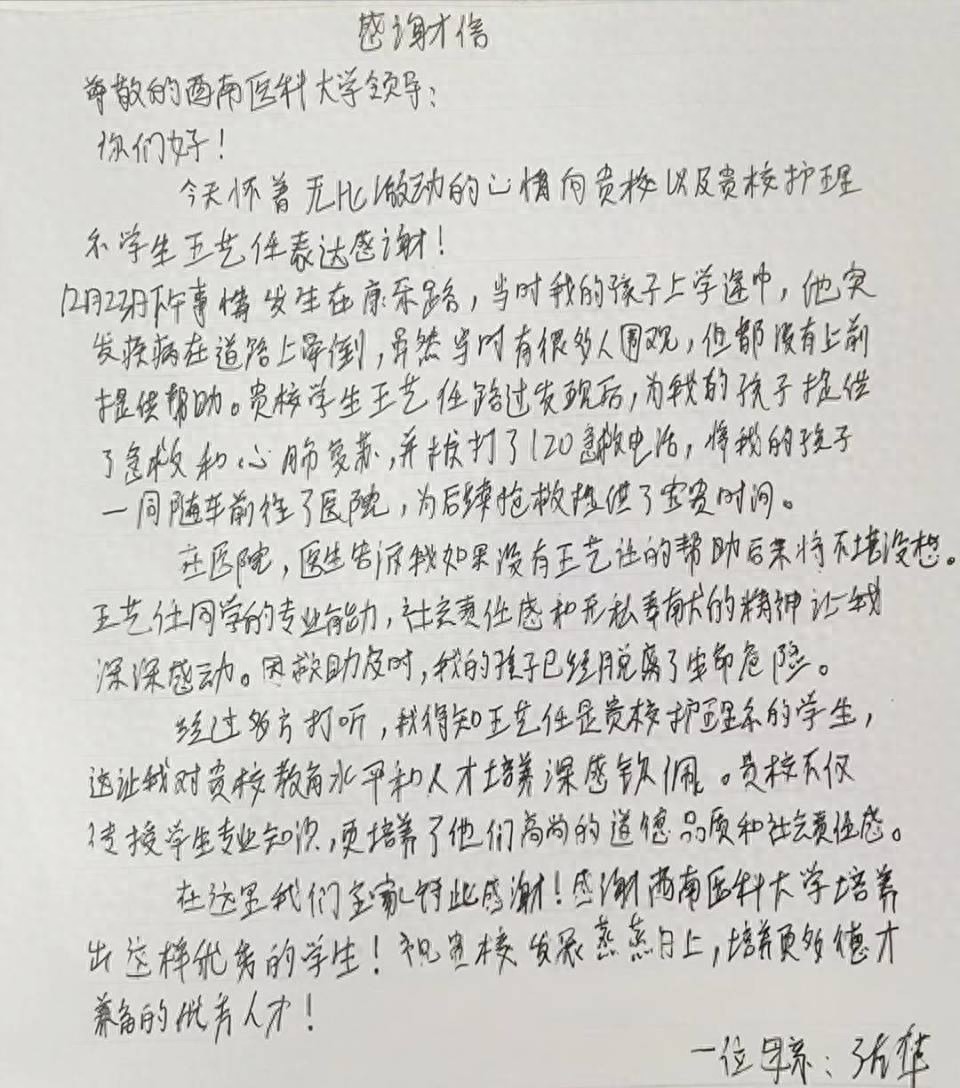 感谢信
尊敬的西南医科大学领导：
你们好！
今天怀着无比激动的心情向贵校以及贵校护理
系学生王艺任表达感谢！
12月23日下午事情发生在康乐路，当时我的孩子上学途中，他突
发疾病在道路上晕倒，虽然当时有很多人围观，但都没有上前
提供帮助。贵校学生王艺任路过发现后，为我的孩子提供
了急救和心肺复苏，并拨打了120急救电话，将我的孩子
一同随车前往了医院，为后续抢救提供了宝贵时间。
在医院，医生告诉我如果没有王艺任的帮助后果将不堪设想。
王艺任同学的专业能力，社会责任感和无私奉献的精神让我
深深感动。因救助及时，我的孩子已经脱离了生命危险。
经过多方打听，我得知王艺任是贵校护理系的学生，
这让我对贵校教育水平和人才培养深感钦佩。贵校不仅
传授学生专业知识，更培养了他们高尚的道德品质和社会责任感。
在这里我们全家特此感谢！感谢西南医科大学培养
出这样优秀的学生！祝贵校发展蒸蒸日上，培养更多德才
兼备的优秀人才！
一位母亲：张华